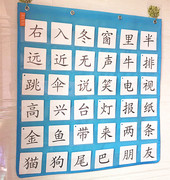 右入冬窗里半
远近无声牛排
跳伞说笑电视
高兴台灯报纸
金鱼带来两条
猫狗尾巴朋友